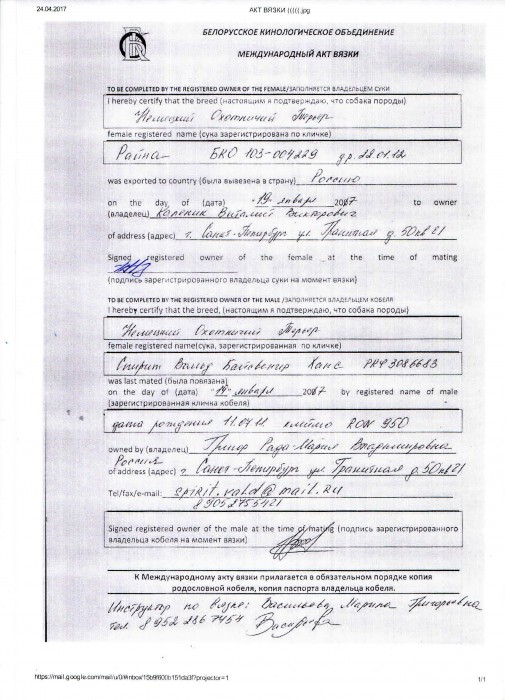 24.04.2017 АКТ ВЯЗКИ (((((.jpg
БЕЛОРУССКОЕ КИНОЛОГИЧЕСКОЕ ОБЪЕДИНЕНИЕ
МЕЖДУНАРОДНЫЙ АКТ ВЯЗКИ
TO BE COMPLETED BY THE REGISTERED OWNER OF THE FEMALE/ЗАПОЛНЯЕТСЯ ВЛАДЕЛЬЦЕМ СУКИ
I hereby certify that the breed (настоящим я подтверждаю, что собака породы)
Немецкий Охотничий Терьер
female registered name (сука зарегистрирована по кличке)
Райна БКО 103-004229 др. 22.01.12
was exported to country (была вывезена в страну) Россию
on the day of (дата) "19" января 2017 to owner
(владелец) Каленик Виталий Викторович
of address (адрес) г. Санкт-Петербург ул. Гранитная д. 50 кв 21
Signed registered owner of the female at the time of mating
(подпись зарегистрированного владельца суки на момент вязки)
TO BE COMPLETED BY THE REGISTERED OWNER OF THE MALE /ЗАПОЛНЯЕТСЯ ВЛАДЕЛЬЦЕМ КОБЕЛЯ
I hereby certify that the breed, (настоящим я подтверждаю, что собака породы)
Немецкий Охотничий Терьер
female registered name(сука, зарегистрированная по кличке)
Спирит Ханс РКФ 3086683
was last mated (была повязана)
on the day of (дата) "19" января 2017 by registered name of male
(зарегистрированная кличка кобеля)
дата рождения 11.07.11 клеймо RON 950
owned by (владелец) Рада-Мария Владимировна
Россия
of address (адрес) г. Санкт-Петербург ул Гранитная д. 50 кв 21
Tel/fax/e-mail: spirit.vald@mail.ru
89052755421
Signed registered owner of the male at the time of mating (подпись зарегистрированного
владельца кобеля на момент вязки)
К Международному акту вязки прилагается в обязательном порядке копия
родословной кобеля, копия паспорта владельца кобеля.
Инструктор по вязке: Васильева Марина Григорьевна
тел. 8 952 236 7454
https://mail.google.com/mail/u/0/#inbox/15b9f900b151da3f?projector=1 1/1